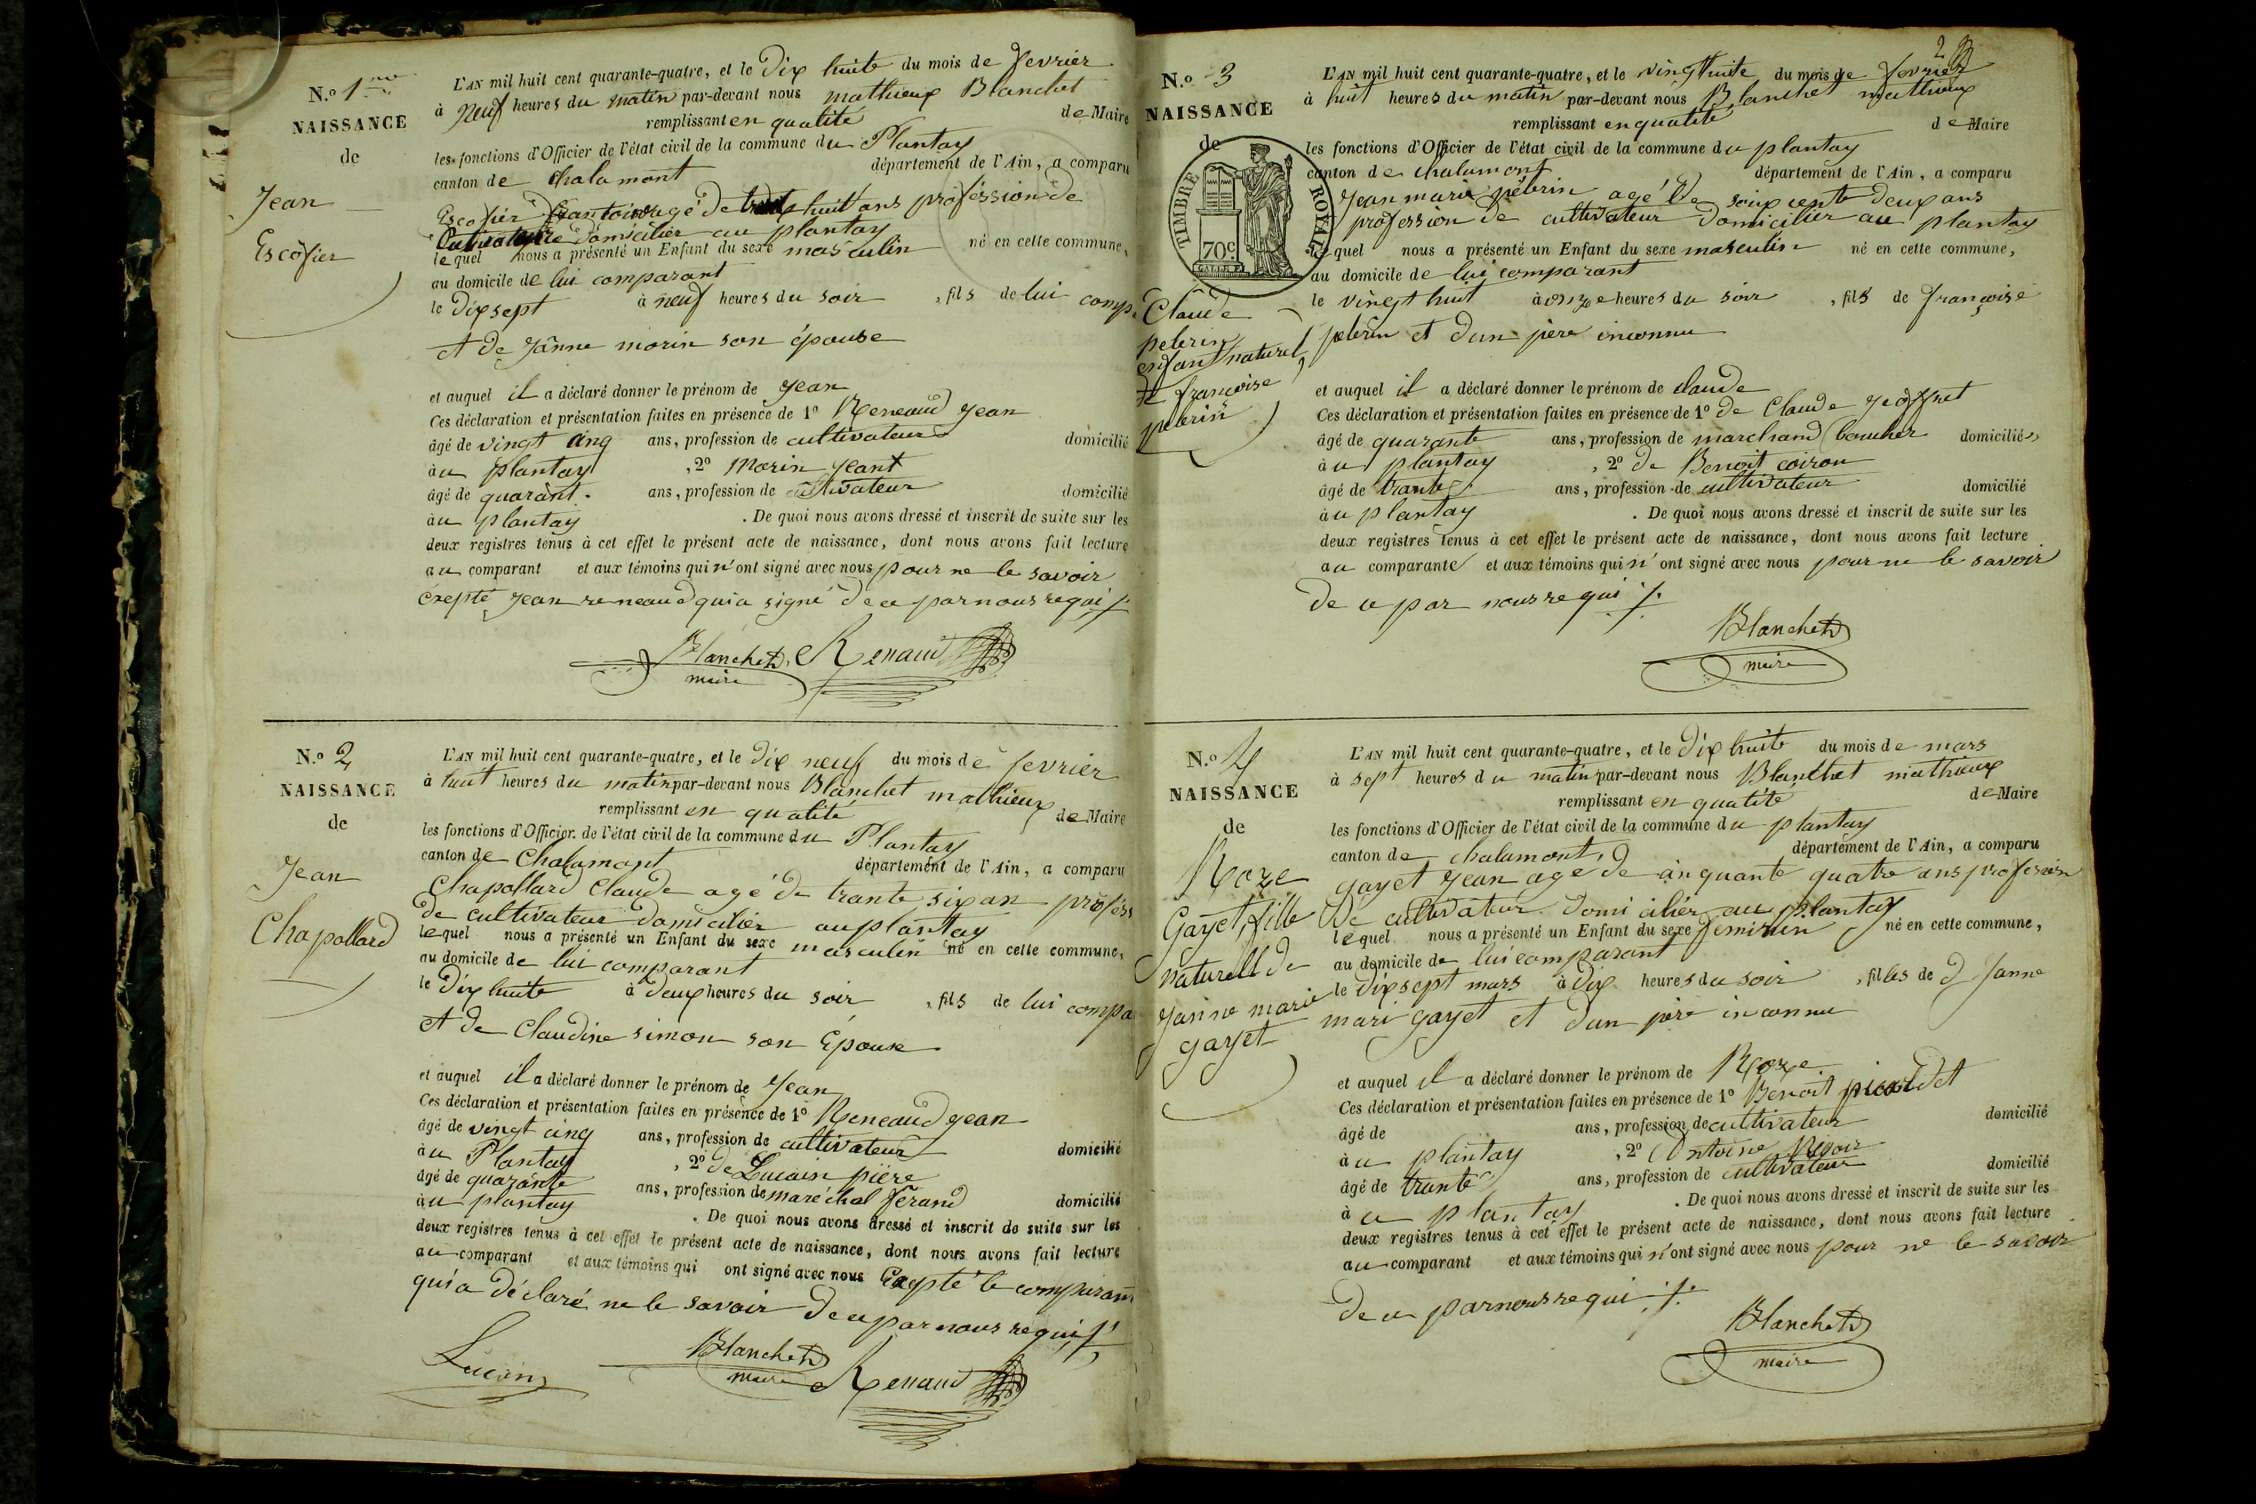 N.o 1
NAISSANCE
de
Jean
Escofier
L'AN mil huit cent quarante-quatre, et le dix huite du mois de fevrier
à neuf heures du matin par-devant nous mathieux Blanchet
remplissant en qualité de Maire
les fonctions d'Officier de l'état civil de la commune du Plantay
canton de chalamont département de l'Ain, a comparu
Escofier agé de huit ans proféssion de
domicilier au plantay
lequel nous a présenté un Enfant du sexe masculin né en cette commune,
au domicile de lui comparant
le dix sept à neuf heures du soir, fils de lui comp.
et de Janne morin son épouse
et auquel il a déclaré donner le prénom de Jean
Ces déclaration et présentation faites en présence de 1o Reneaud Jean
âgé de vingt cinq ans, profession de cultivateur domicilié
àu plantay, 2o Morin Jean
âgé de quarant. ans, profession de cultivateur domicilié
àu plantay. De quoi nous avons dressé et inscrit de suite sur les
deux registres tenus à cet effet le présent acte de naissance, dont nous avons fait lecture
au comparant et aux témoins qui n'ont signé avec nous pour ne le savoir
exepté Jean reneaud qui a signé de ce par nous requi
Blanchet Renaud
maire
N.o 2
NAISSANCE
de
Jean
Chapollard
L'AN mil huit cent quarante-quatre, et le dix neuf du mois de fevrier
à huit heures du matin par-devant nous Blanchet mathieux
remplissant en qualité de Maire
les fonctions d'Officier de l'état civil de la commune du Plantay
canton de Chalamont département de l'Ain, a comparu
Chapollard Claude agé de trante six an proféss
de cultivateur domicilier au plantay
lequel nous a présenté un Enfant du sexe masculin né en cette commune,
au domicile de lui comparant
le dix huite à deux heures du soir, fils de lui compa
et de Claudine simon son Épouse
et auquel il a déclaré donner le prénom de Jean
Ces déclaration et présentation faites en présence de 1o Reneaud Jean
âgé de vingt cinq ans, profession de cultivateur domicilié
àu Plantay, 2o de Lucain piere
âgé de quarante ans, profession de maréchal ferand domicilié
àu plantay. De quoi nous avons dressé et inscrit de suite sur les
deux registres tenus à cet effet le présent acte de naissance, dont nous avons fait lecture
au comparant et aux témoins qui ont signé avec nous Exepté le comparant
qui a déclaré ne le savoir de ce par nous requi
Lucain Blanchet
maire Renaud
2
N.o 3
NAISSANCE
de
TIMBRE ROYAL
70c.
Claude
pelerin
enfant naturel
de francoise
pelerin
L'AN mil huit cent quarante-quatre, et le vingt huite du mois de fevrier
à huit heures du matin par-devant nous Blanchet mathieux
remplissant en qualité de Maire
les fonctions d'Officier de l'état civil de la commune du plantay
canton de chalamont département de l'Ain, a comparu
Jean marie pelerin agé de soixcente deux ans
profession de cultivateur domicilier au plantay
lequel nous a présenté un Enfant du sexe masculin né en cette commune,
au domicile de lui comparant
le vingt huit à onze heures du soir, fils de françoise
pelerin et d'un père inconnu
et auquel il a déclaré donner le prénom de claude
Ces déclaration et présentation faites en présence de 1o de Claude Jeoffret
âgé de quarante ans, profession de marchand boucher domicilié
àu plantay, 2o de Benoit coiron
âgé de trante ans, profession de cultivateur domicilié
àu plantay. De quoi nous avons dressé et inscrit de suite sur les
deux registres tenus à cet effet le présent acte de naissance, dont nous avons fait lecture
au comparant et aux témoins qui n'ont signé avec nous pour ne le savoir
de ce par nous requi
Blanchet
maire
N.o 4
NAISSANCE
de
Roze
Gayet, fille
naturell de
Janne marie
gayet
L'AN mil huit cent quarante-quatre, et le dix huite du mois de mars
à sept heures du matin par-devant nous Blanchet mathieux
remplissant en qualité de Maire
les fonctions d'Officier de l'état civil de la commune du plantay
canton de chalamont, département de l'Ain, a comparu
gayet Jean agé de cinquante quatre ans profession
de cultivateur domicilier au plantay
lequel nous a présenté un Enfant du sexe feminin né en cette commune,
au domicile de lui comparant
le dix sept mars à dix heures du soir, filles de d Janne
mari gayet et d'un père inconnu
et auquel il a déclaré donner le prénom de Roze
Ces déclaration et présentation faites en présence de 1o Benoit picoldet
âgé de ans, profession de cultivateur domicilié
àu plantay, 2o Antoine
âgé de trante ans, profession de cultivateur domicilié
à u plantay. De quoi nous avons dressé et inscrit de suite sur les
deux registres tenus à cet effet le présent acte de naissance, dont nous avons fait lecture
au comparant et aux témoins qui n'ont signé avec nous pour ne le savoir
de ce par nous requi
Blanchet
maire